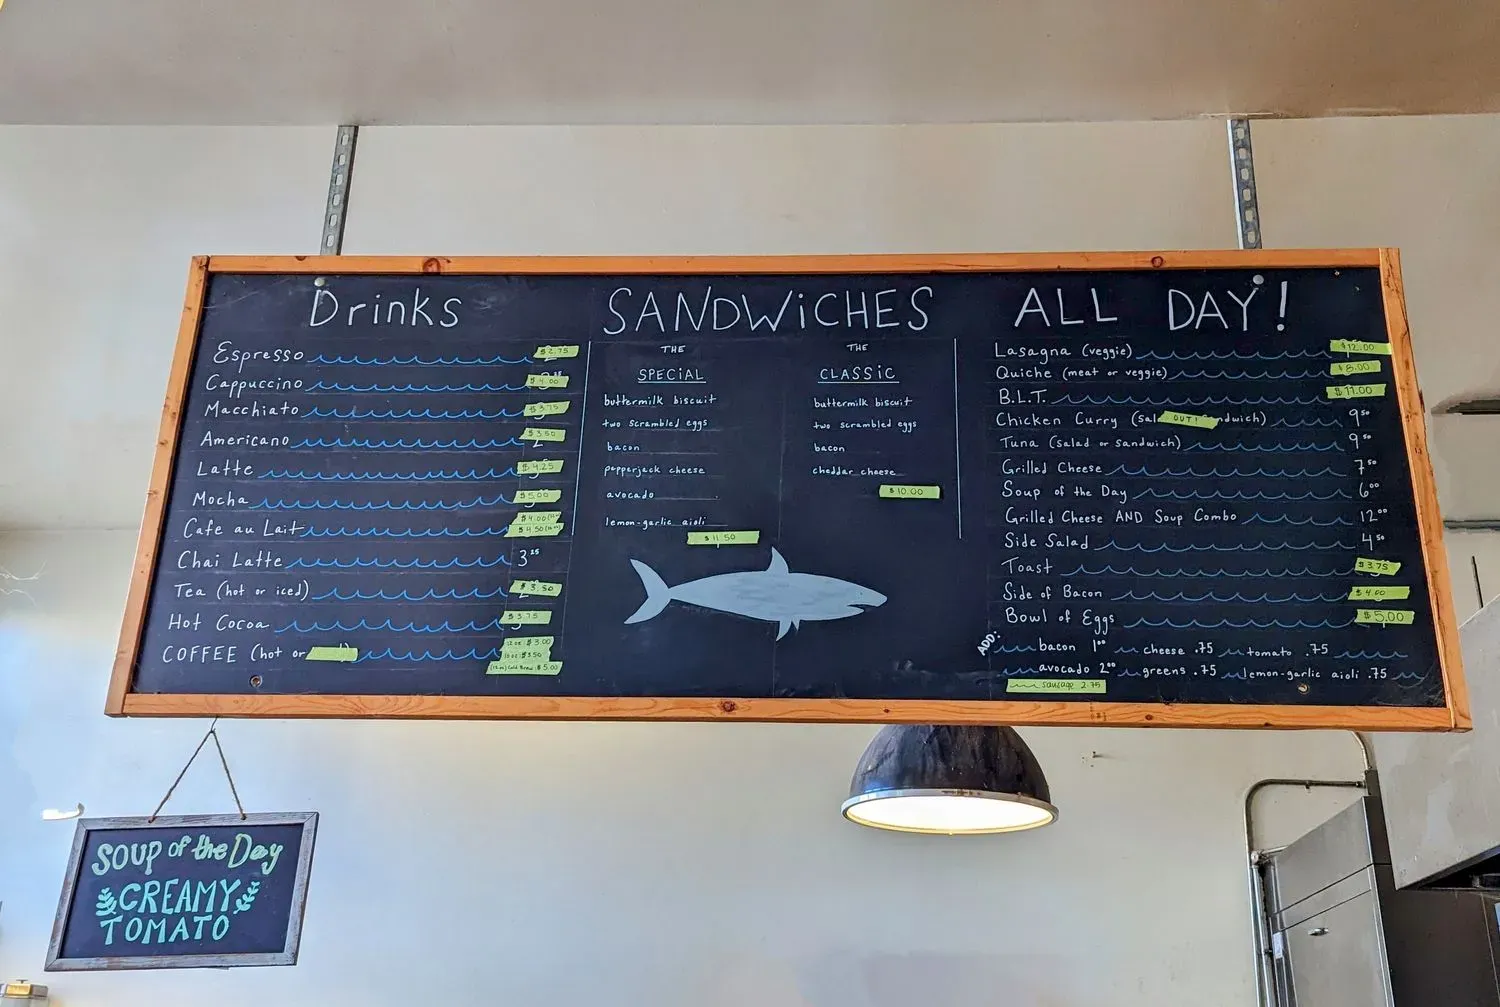 Drinks
Espresso $2.75
Cappuccino $4.00
Macchiato $3.75
Americano $3.50
Latte $4.25
Mocha $5.00
Cafe au Lait $4.00 (12oz)
$4.50 (16oz)
Chai Latte 3²⁵
Tea (hot or iced) $3.50
Hot Cocoa $3.75
COFFEE (hot or
12 oz: $3.00
16 oz: $3.50
(12 oz) Cold Brew: $5.00
SANDWiCHES
THE
SPECiAL
buttermilk biscuit
two scrambled eggs
bacon
pepperjack cheese
avocado
lemon-garlic aioli
$11.50
THE
CLASSiC
buttermilk biscuit
two scrambled eggs
bacon
cheddar cheese
$10.00
ALL DAY!
Lasagna (veggie) $12.00
Quiche (meat or veggie) $8.00
B.L.T. $11.00
Chicken Curry (sal OUT! ndwich) 9⁵⁰
Tuna (salad or sandwich) 9⁵⁰
Grilled Cheese 7⁵⁰
Soup of the Day 6⁰⁰
Grilled Cheese AND Soup Combo 12⁰⁰
Side Salad 4⁵⁰
Toast $3.75
Side of Bacon $4.00
Bowl of Eggs $5.00
ADD: bacon 1⁰⁰ cheese .75 tomato .75
avocado 2⁰⁰ greens .75 lemon-garlic aioli .75
sausage 2.75
SOUP of the Day
CREAMY
TOMATO